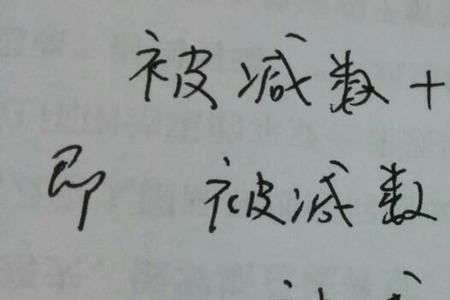 被减数+
即 被减数